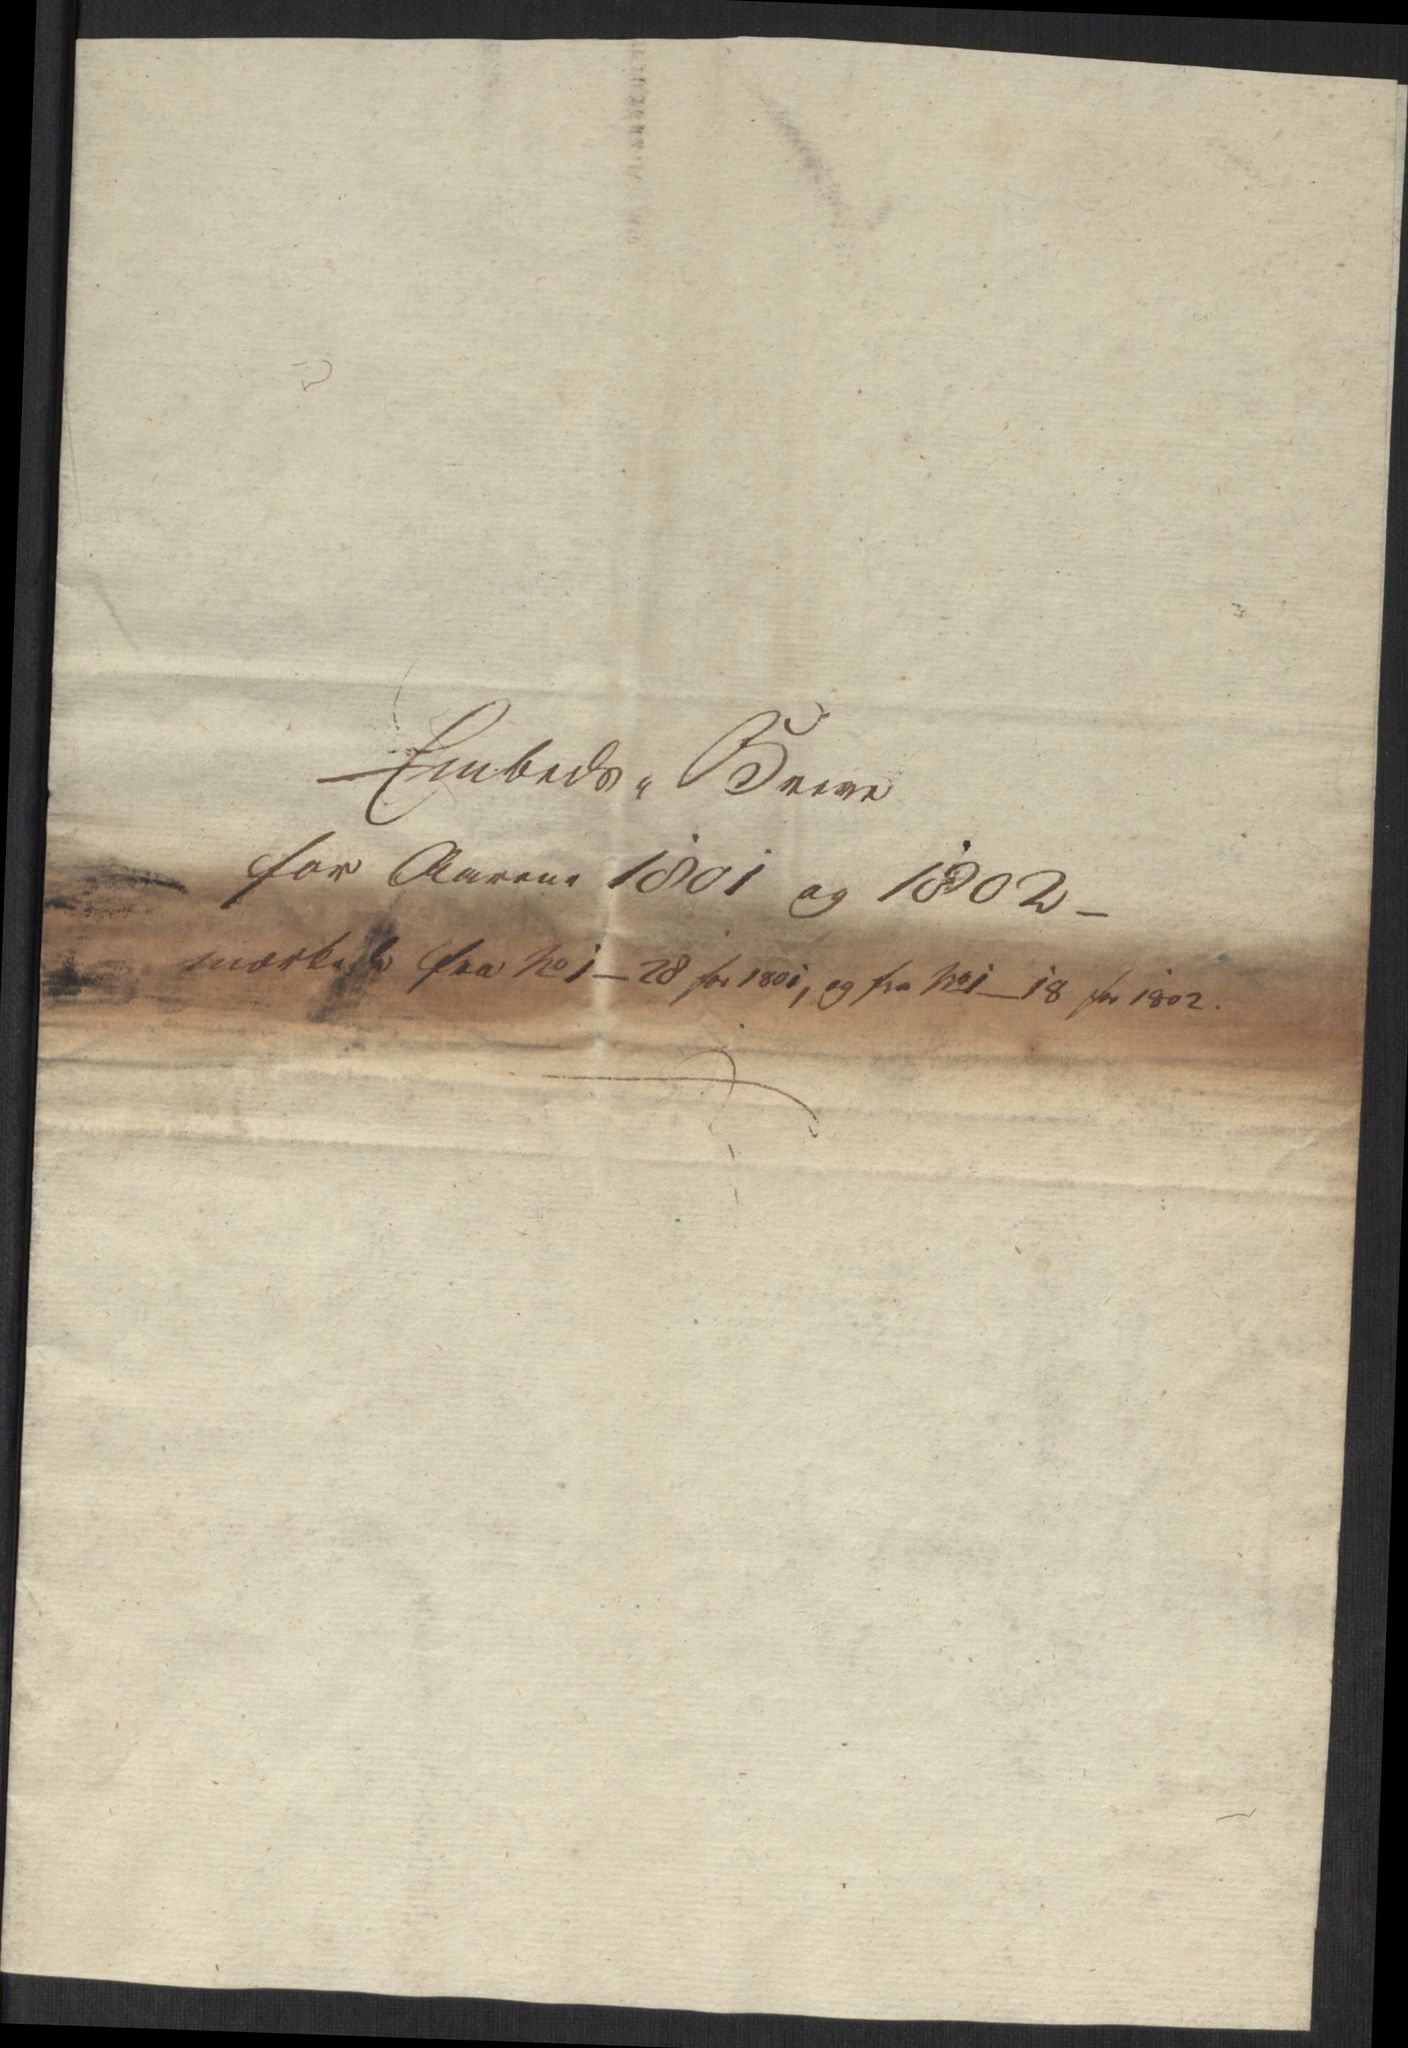 Embeds„ Breve
for Aarene 1801 og 1802 –
mærkede fra No 1 – 28 for 1801, og fra No 1 – 18 for 1802.